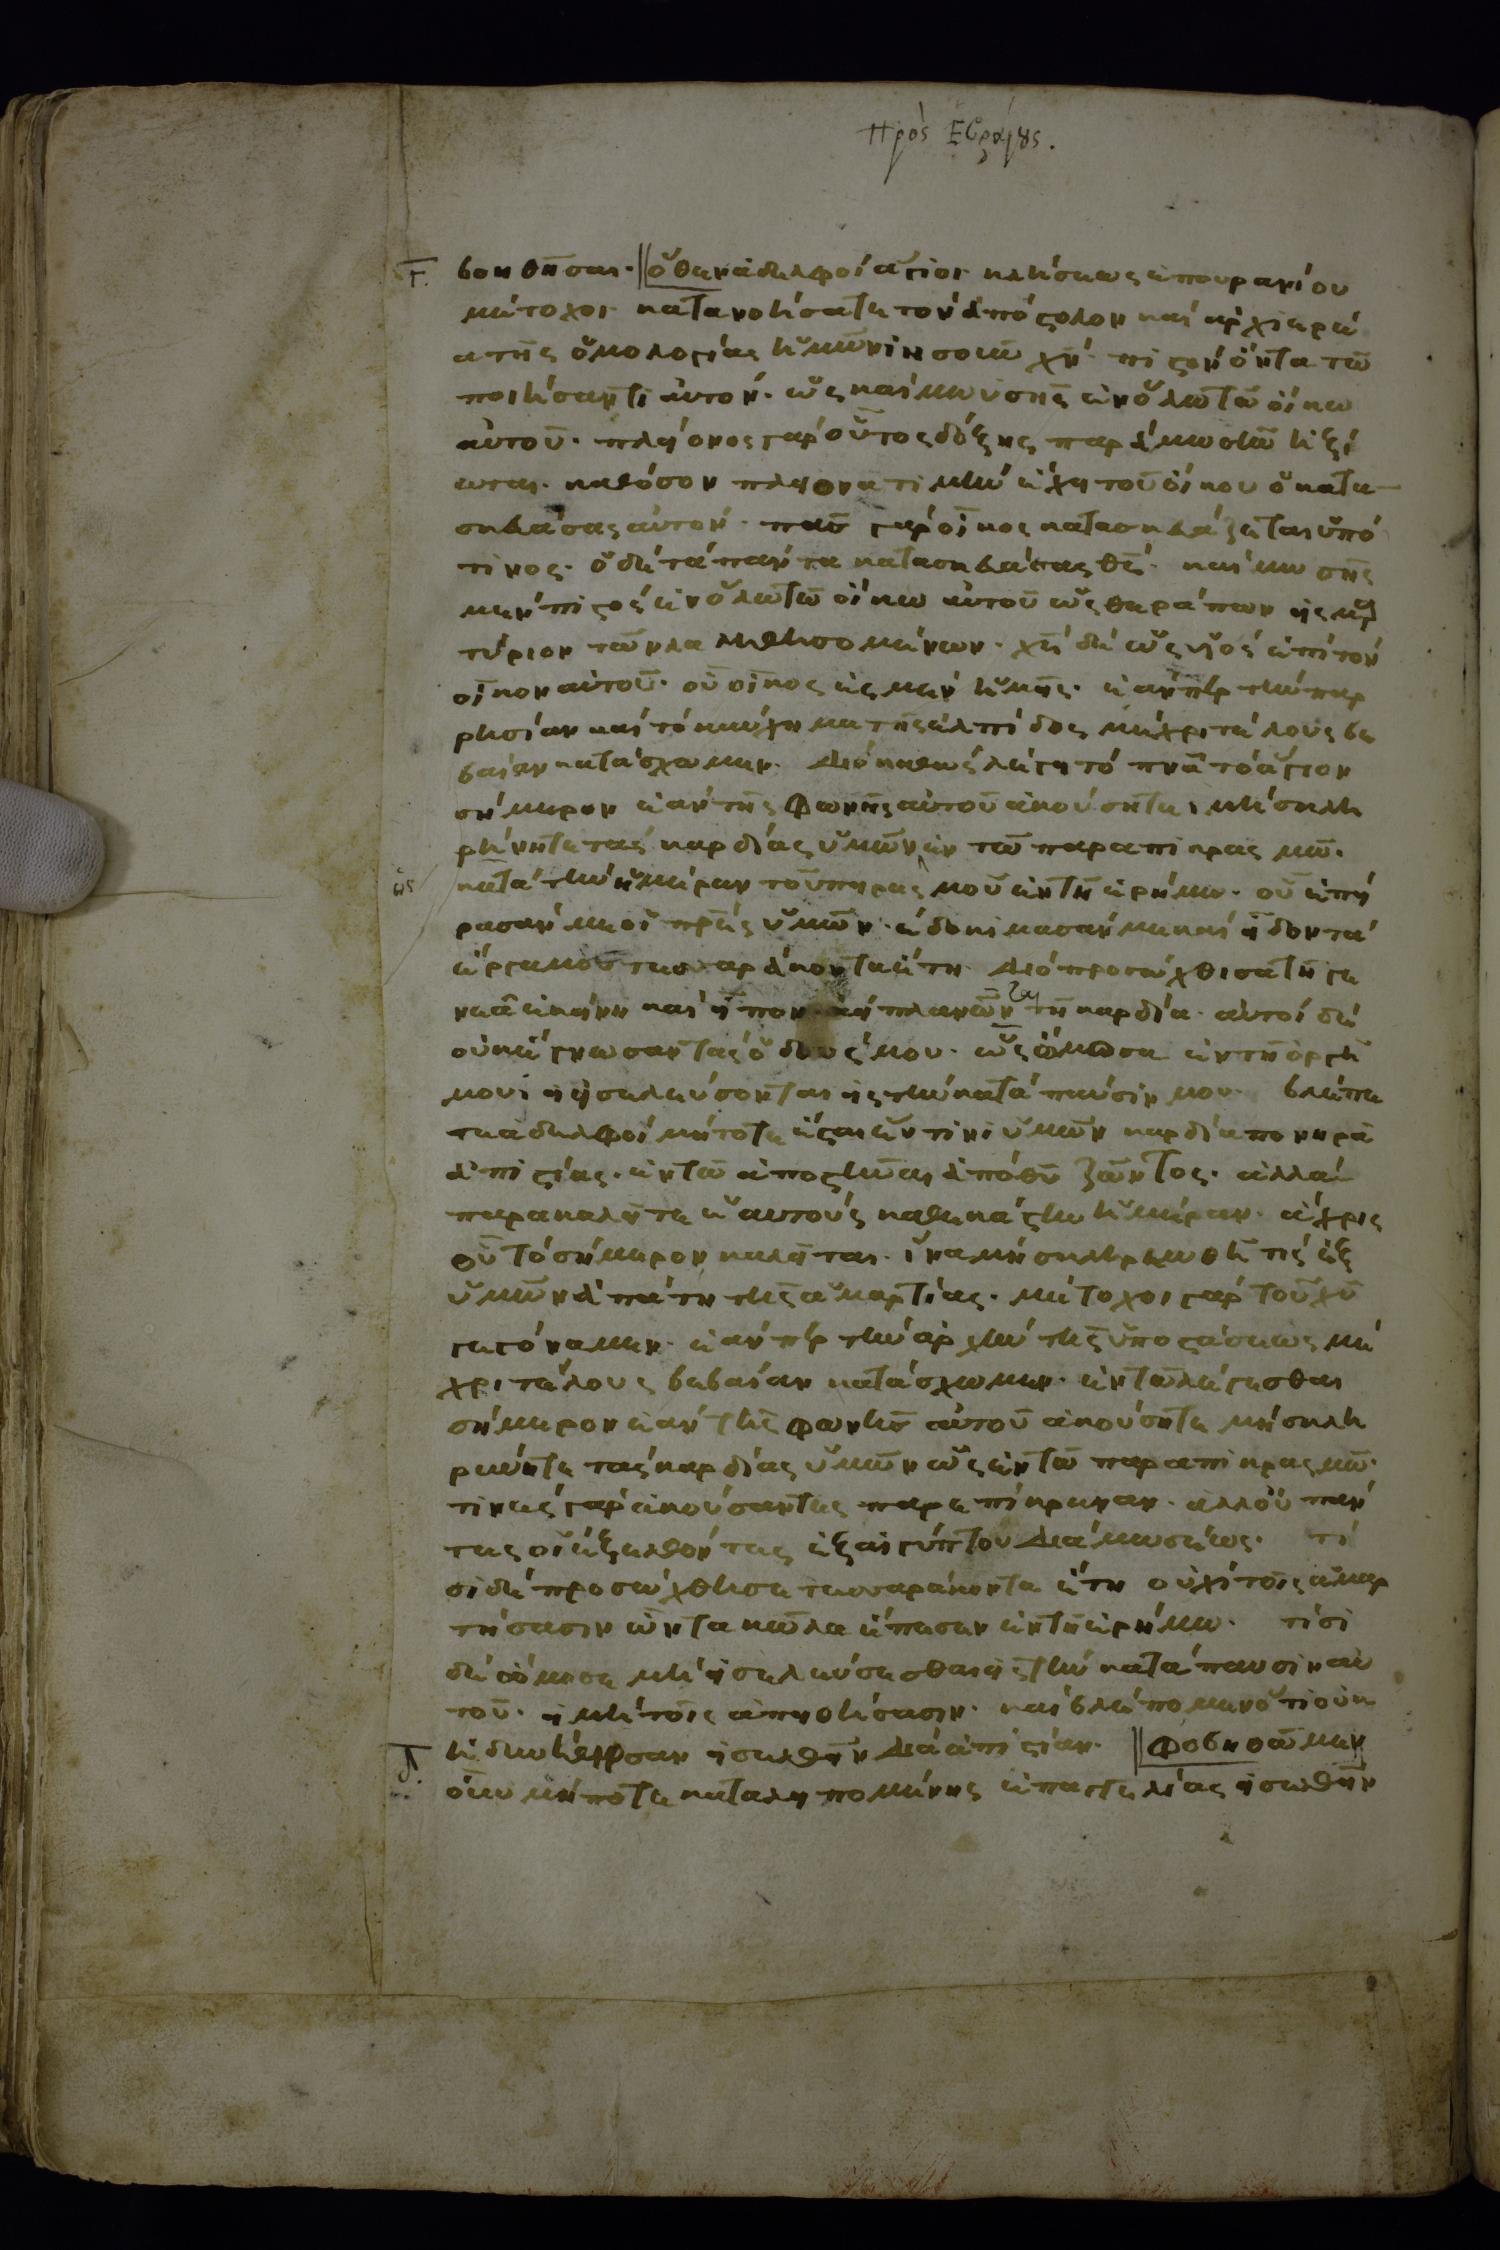 Πρὸς Ἑβραίους.
Γ. βοηθῆσαι· ὅθεν ἀδελφοί ἅγιοι κλήσεως ἐπουρανίου
μέτοχοι κατανοήσατε τον ἀπόστολον και ἀρχιερέ
α τῆς ὁμολογίας ἡμῶν ιησουν χν· πιστον ὄντα τῶ
ποιήσαντι αυτον· ὡς και μωυσης ἐν ὅλω τῶ οἴκω
αὐτοῦ· πλείονος γαρ οὗτος δόξης παρὰ μωσῆν ἠξί
ωται· καθόσον πλείονα τιμὴν ἔχει τοῦ οἴκου ὁ κατα
σκευάσας αὐτον· πας γαρ οἶκος κατασκευάζεται ὑπό
τινος· ὁ δε τα παντα κατασκευάσας θς· και μωσῆς
μεν πιστος ἐν ὅλω τῶ οἴκω αυτοῦ ὡς θεράπων εἰς μαρ
τύριον τῶν λαληθησομένων· χς δε ὡς υἱος ἐπι τον
οἶκον αὐτοῦ· οὗ οἶκος ἐσμεν ἡμεῖς· ἐανπερ την παρ
ρησίαν και το καύχημα τῆς ἐλπίδος μέχρι τέλους βε
βαίαν κατάσχωμεν· Διο καθως λέγει το πνα το ἅγιον
σήμερον ἐαν τῆς φωνῆς αὐτοῦ ἀκούσητε, μη σκλη
ρύνητε τας καρδίας ὑμῶν ἐν τῶ παραπικρασμῶ·
ὡς κατα την ἡμέραν τοῦ πειρασμοῦ ἐν τῆ ἐρήμω· οὗ ἐπεί
ρασαν με οἱ πρες ὑμῶν· ἐδοκίμασαν με και εἶδον τα
ἔργα μου τεσσαράκοντα ἔτη· Διο προσώχθισα τῆ γε
νεᾶ ἐκείνη και εἶπον ἀεὶ πλανῶνται τῆ καρδία· αὐτοι δε
οὐκ ἔγνωσαν τας ὁδους μου· ὡς ὤμοσα ἐν τῆ ὀργῆ
μου· εἰ εἰσελεύσονται εἰς την κατάπαυσίν μου· βλέπε
τε ἀδελφοι μήποτε ἔσται ἔν τινι ὑμῶν καρδία πονηρα
ἀπιστίας· ἐν τῶ ἀποστῆναι ἀπο θυ ζῶντος· ἀλλα
παρακαλεῖτε ἑαυτους καθεκάστην ἡμέραν· ἄχρις
οὗ το σήμερον καλεῖται· ἵνα μη σκληρυνθῆ τις ἐξ
ὑμῶν ἀπάτη τῆς ἁμαρτίας· μέτοχοι γαρ τοῦ χυ
γεγόναμεν· ἐανπερ την ἀρχην τῆς ὑποστάσεως μέ
χρι τέλους βεβαίαν κατάσχωμεν· ἐν τῶ λέγεσθαι
σήμερον ἐαν τῆς φωνῆς αὐτοῦ ἀκούσητε μη σκλη
ρύνητε τας καρδίας ὑμῶν ὡς ἐν τῶ παραπικρασμῶ·
τινες γαρ ἀκούσαντες παρεπίκραναν· ἀλλ οὐ παν
τες οἱ ἐξελθόντες ἐξ αἰγύπτου δια μωσέως· τί
σι δε προσώχθησε τεσσαράκοντα ἔτη οὐχι τοῖς ἁμαρ
τήσασιν ὧν τα κῶλα ἔπεσεν ἐν τῆ ἐρήμω· τίσι
δε ὤμοσε μη εἰσελεύσεσθαι εἰς την κατάπαυσιν αὐ
τοῦ· εἰ μη τοῖς ἀπειθήσασιν· και βλέπομεν ὅτι οὐκ
ἠδυνήθησαν εἰσελθεῖν δια ἀπιστίαν· Φοβηθῶμεν
Δ. οὖν μήποτε καταλειπομένης ἐπαγγελίας εἰσελθεῖν